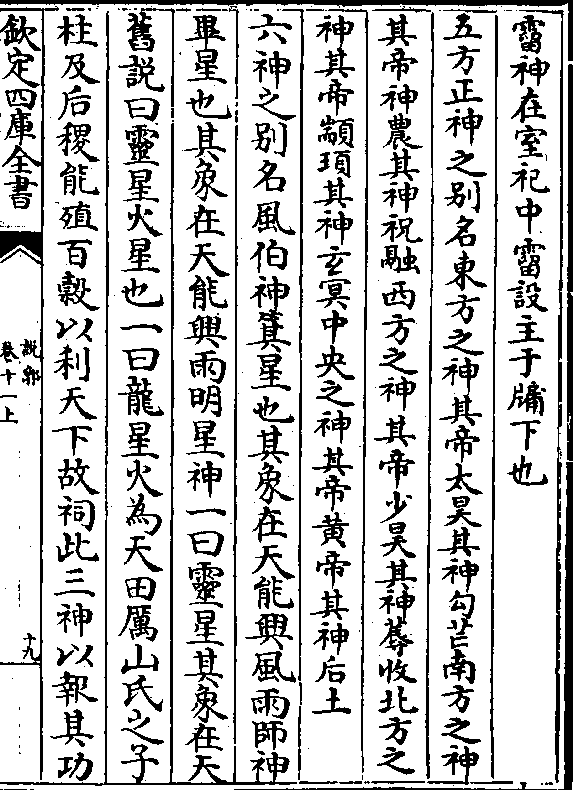 霤神在室祀中霤設主于牖下也
五方正神之别名東方之神其帝太昊其神勾芒南方之神
其帝神農其神祝融西方之神其帝少昊其神蓐收北方之
神其帝顓頊其神玄冥中央之神其帝黄帝其神后土
六神之别名風伯神箕星也其象在天能興風雨師神
畢星也其象在天能興雨明星神一曰靈星其象在天
舊説曰靈星火星也一曰龍星火為天田厲山氏之子
柱及后稷能殖百穀以利天下故祠此三神以報其功
欽定四庫全書
説郛
卷十一上
十九